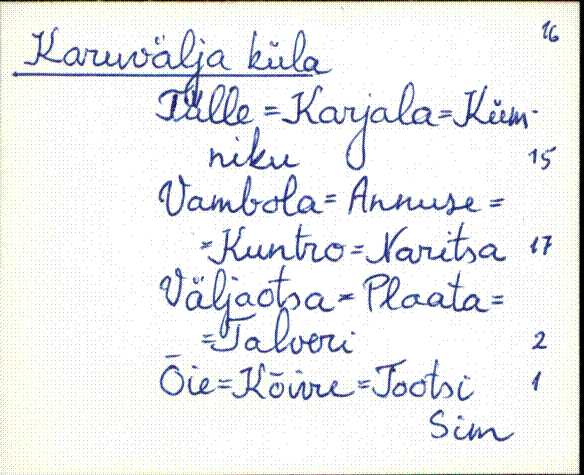 16
Karuvälja küla
Tälle = Karjala = Küm-
niku 15
Vambola = Annuse =
= Kuntro = Naritsa 17
Väljaotsa = Plaata =
= Talveri 2
Õie = Kõivre = Tootsi 1
Sim